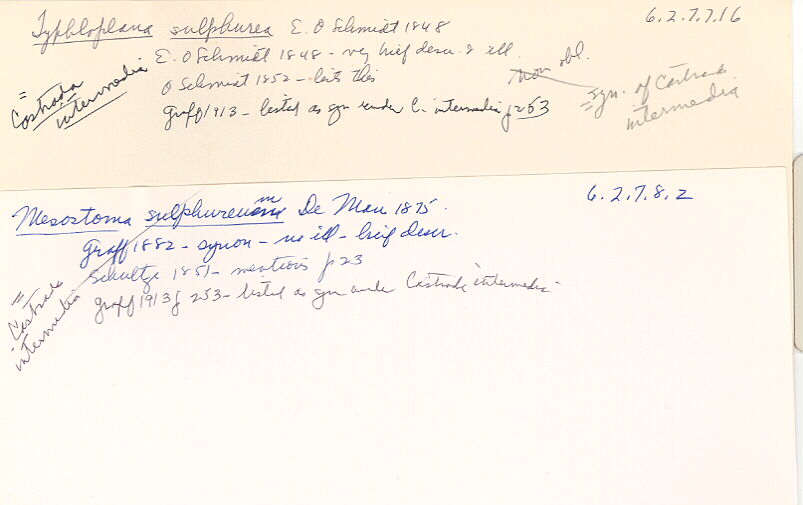 6.2.7.7.16
Typhloplana sulphurea E. O Schmidt 1848
E. O Schmidt 1848 - very brief descr. & ill.
O Schmidt 1852 - lists this
nom obl.
Graff 1913 - listed as syn under C. intermedia p 253
= Castrada intermedia
= syn. of Castrada
intermedia
6.2.7.8.2
Mesostoma sulphureum De Man 1875.
Graff 1882 - synon - no ill - brief descr.
Schultze 1851 - mentions p 23
Graff 1913 p 253 - listed as syn under Castrada intermedia
= Castrada
intermedia